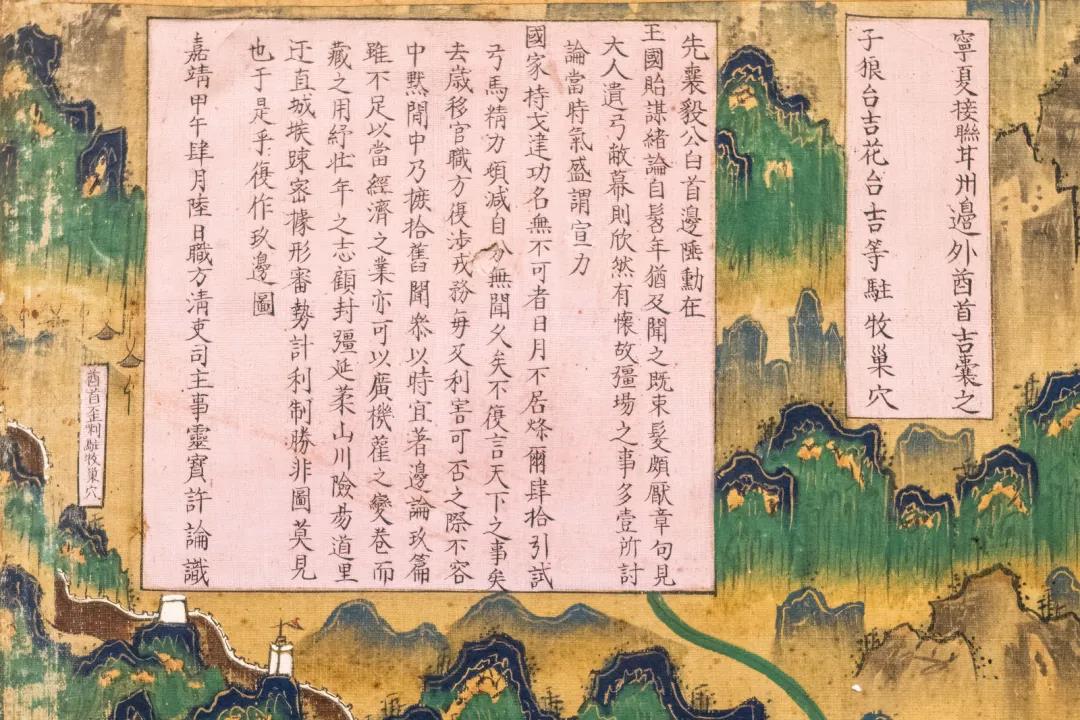 寧夏接聯甘州邊外酋首吉囊之
子狼台吉花台吉等駐牧巢穴
先襄毅公白首邊陲勳在
王國貽謀緒論自髫年猶及聞之既束髮頗厭章句見
大人遺弓敝幕則欣然有懷故彊場之事多壹所討
論當時氣盛謂宣力
國家持戈逹功名無不可者日月不居倏爾肆拾引試
弓馬精力頓減自分無聞久矣不復言天下之事矣
去歲移官職方復涉戎務每及利害可否之際不容
中黙閒中乃摭拾舊聞叅以時宜著邊論玖篇
雖不足以當經濟之業亦可以廣機萑之變卷而
藏之用紓壯年之志顧封彊延袤山川險易道里
迂直城堠踈密據形審勢計利制勝非圖莫見
也于是乎復作玖邊圖
嘉靖甲午肆月陸日職方清吏司主事靈寶許論識
酋首歪剌駐牧巢穴